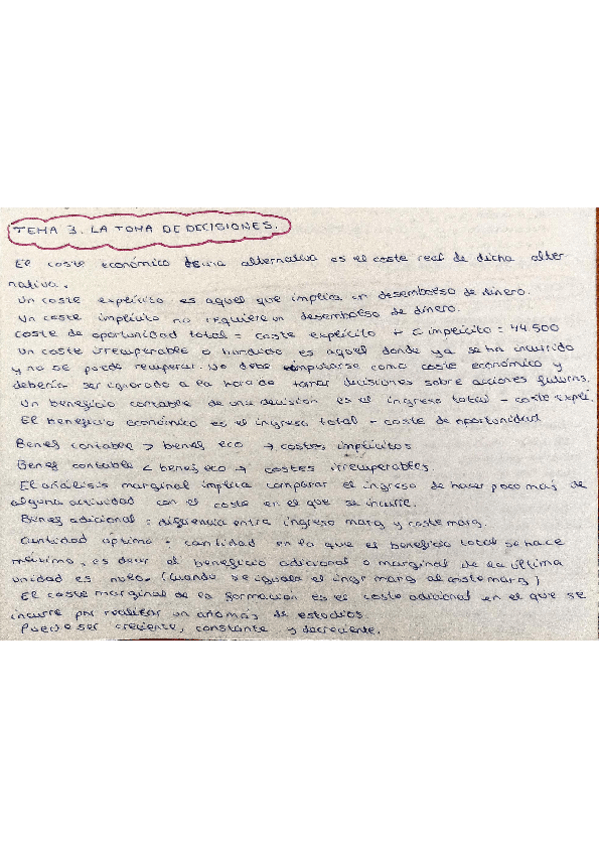 TEMA 3. LA TOMA DE DECISIONES.
El coste económico de una alternativa es el coste real de dicha alter
nativa.
Un coste explícito es aquel que implica un desembolso de dinero.
Un coste implícito no requiere un desembolso de dinero.
Coste de oportunidad total = coste explícito + C implícito = 44 500
Un coste irrecuperable o hundido es aquel donde ya se ha incurrido
y no se puede recuperar. No debe computarse como coste económico y
debería ser ignorado a la hora de tomar decisiones sobre acciones futuras.
Un beneficio contable de una decisión es el ingreso total - coste explí.
El beneficio económico es el ingreso total - coste de oportunidad
Benef contable > benef eco → costes implícitos
Benef contable < benef eco → costes irrecuperables.
El análisis marginal implica comparar el ingreso de hacer poco más de
alguna actividad con el coste en el que se incurre.
Benef adicional = diferencia entre ingreso marg y coste marg.
Cantidad óptima = cantidad en la que el beneficio total se hace
máximo, es decir el beneficio adicional o marginal de la última
unidad es nulo. (cuando se iguala el ingr marg al coste marg)
El coste marginal de la formación es el coste adicional en el que se
incurre por realizar un año más de estudios
Puede ser creciente, constante y decreciente.